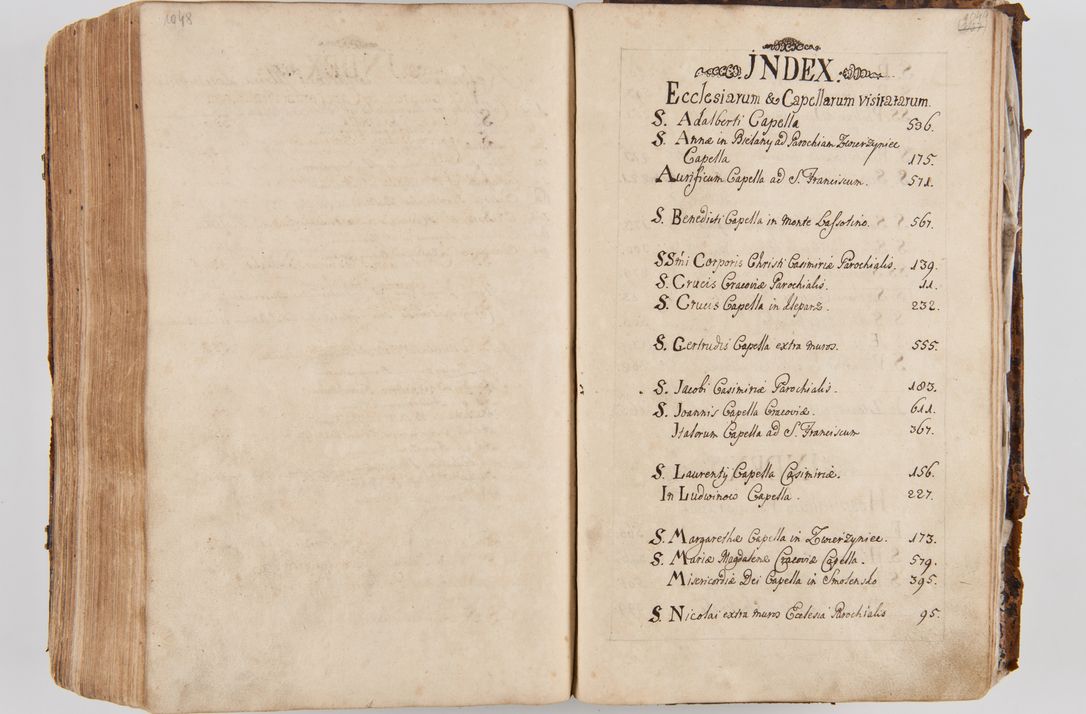 1048
JNDEX.
Ecclesiarum & Capellarum visitatarum.
S. Adalberti Capella 536.
S. Annæ in Bielany ad Parochiam Zwierzyniec
Capella 175.
Aurificum Capella ad S. Franciscum. 571.
S. Benedicti Capella in monte Lassotino. 567.
SStni Corporis Christi Casimiriæ Parochialis. 139.
S. Crucis Cracoviæ Parochialis. 11.
S. Crucis Capella in Kleparz. 232.
S. Gertrudis Capella extra muros. 555.
S. Jacobi Casimiriæ Parochialis. 183.
S. Joannis Capella Cracoviæ. 611.
Jtalorum Capella ad S. Franciscum 367.
S. Laurentij Capella Casimiriæ. 156.
In Ludwinow Capella. 227.
S. Margarethæ Capella in Zwierzyniec. 173.
S. Mariæ Magdalenæ Cracoviæ Capella. 579.
Misericordiæ Dei Capella in Smolensko 395.
S. Nicolai extra muros Ecclesia Parochialis 95.